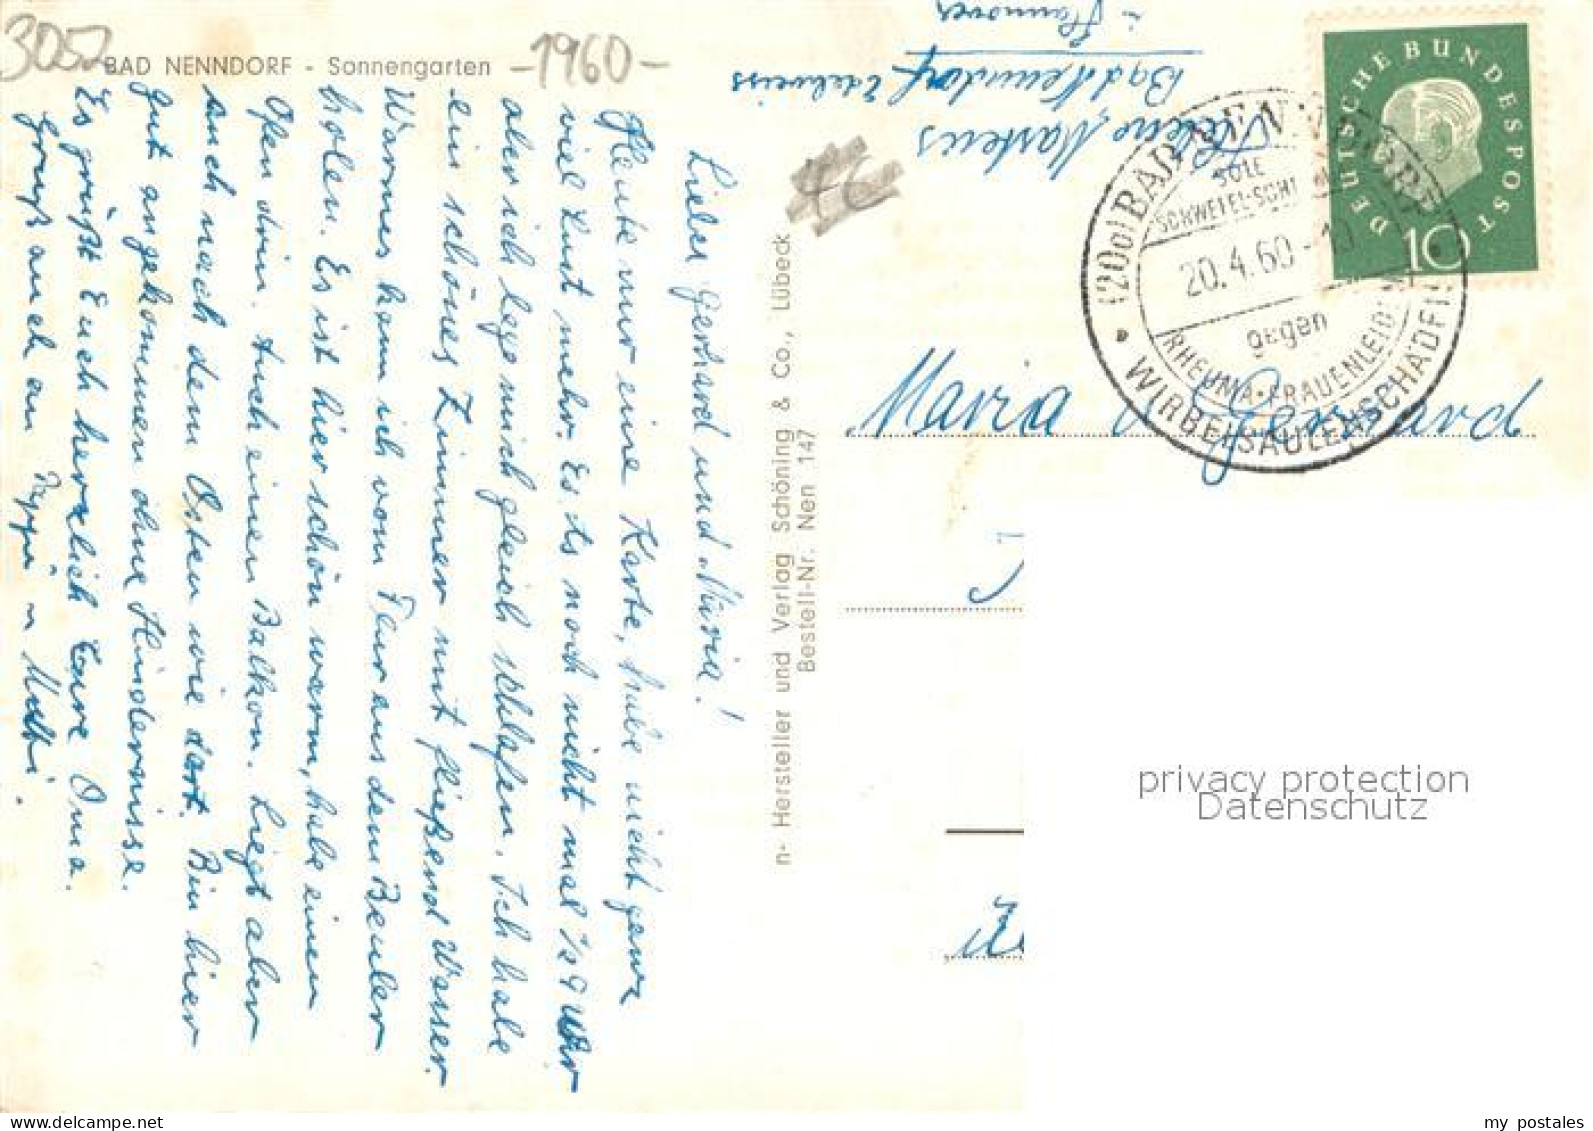 3052
BAD NENNDORF - Sonnengarten
-1960-
Lieber Gerhard und Maria!
Heute nur eine Karte, habe nicht ganz
viel Lust mehr. Es ist noch nicht mal 1/2 9 Uhr
aber ich lege mich gleich schlafen. Ich habe
ein schönes Zimmer mit fließend Wasser.
Warmes kann ich vom Flur aus dem Beuler
holen. Es ist hier schön warm, habe einen
Ofen drin. Auch einen Balkon. Liegt aber
auch nach dem Osten wie dort. Bin hier
gut angekommen ohne Hindernisse.
Es grüßt Euch herzlich Eure Oma.
Gruß auch an Pappi u Mutti.
n- Hersteller und Verlag Schöning & Co., Lübeck
Bestell-Nr. Nen 147
Martens
Bad Nenndorf Edelweiss
i Hannover
DEUTSCHE BUNDESPOST
10
(20a) BAD NENNDORF
SOLE
SCHWEFEL-SCHL
20.4.60-10
gegen
RHEUMA·FRAUENLEIDEN
WIRBELSÄULENSCHÄDEN
Maria u Gerhard
privacy protection
Datenschutz
my postales